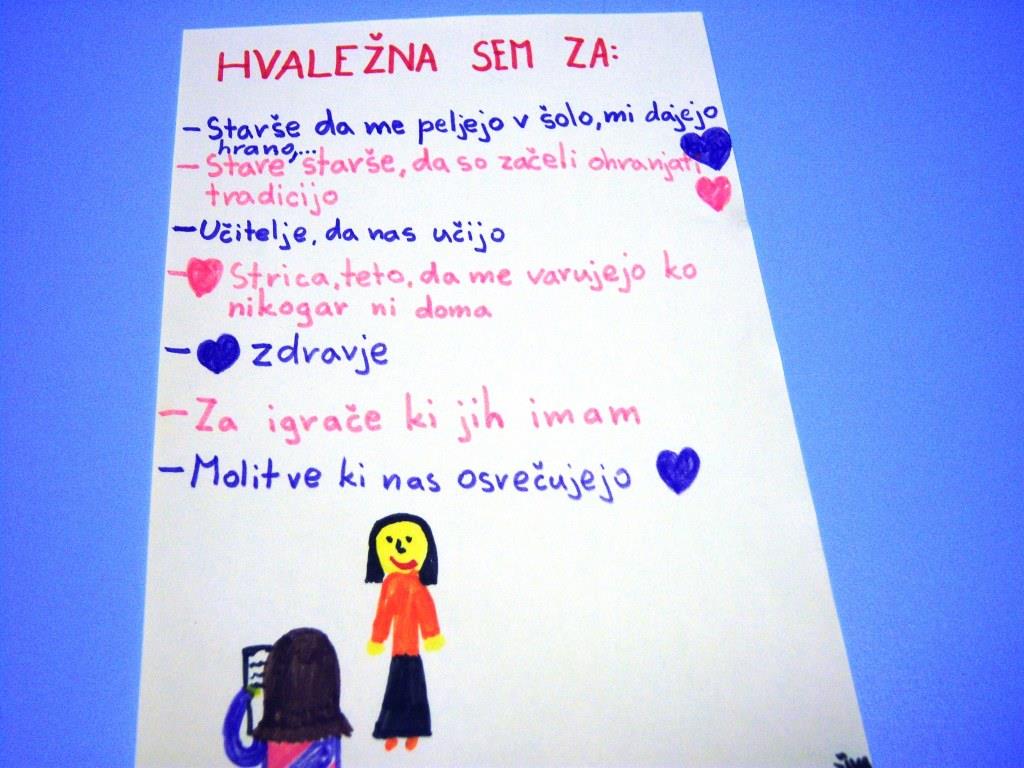 HVALEŽNA SEM ZA:
- Starše da me peljejo v šolo, mi dajejo
hrano,...
- Stare starše, da so začeli ohranjati
tradicijo
- Učitelje, da nas učijo
- Strica, teto, da me varujejo ko
nikogar ni doma
- zdravje
- Za igrače ki jih imam
- Molitve ki nas osvečujejo